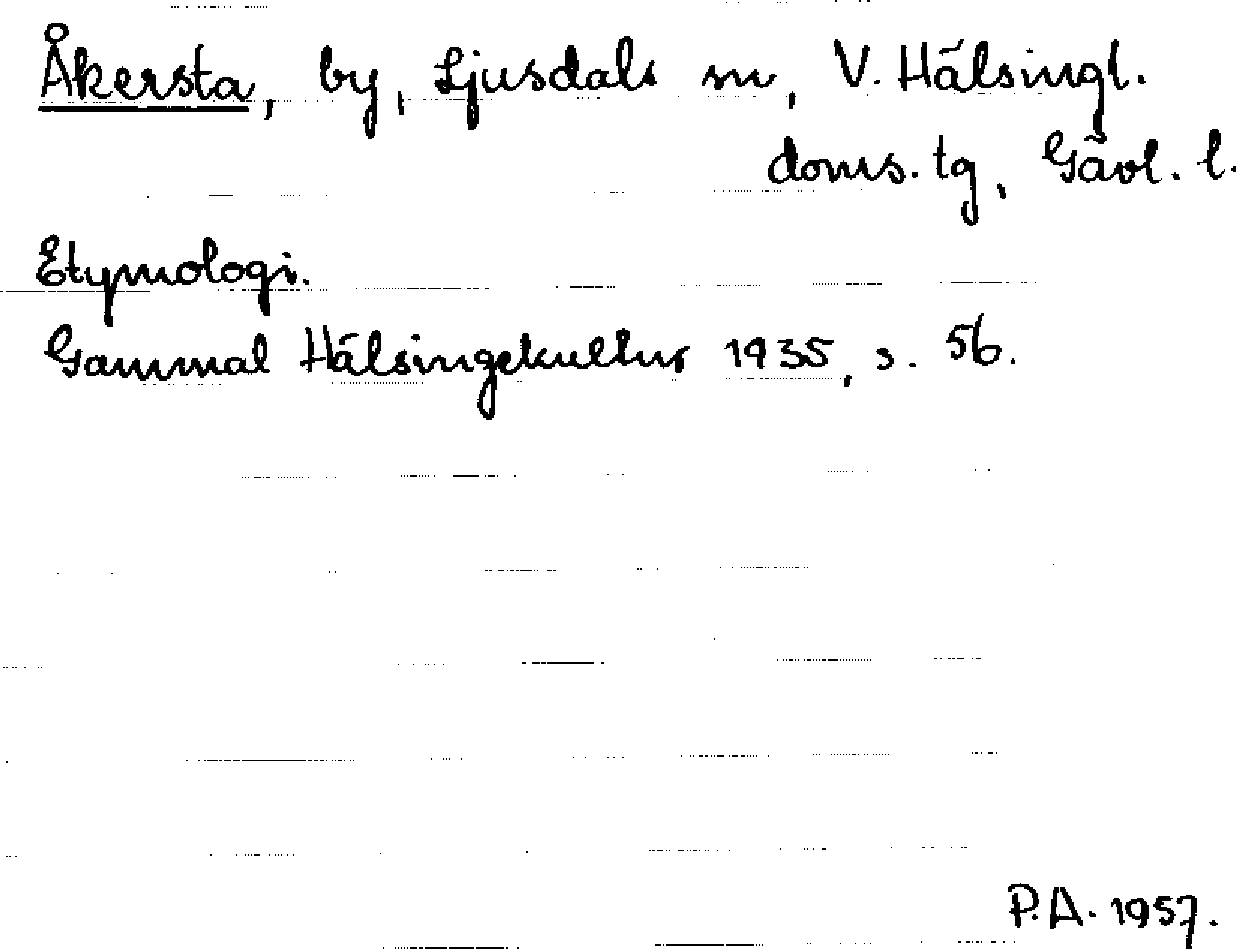 Åkersta, by, Ljusdals sn, V. Hälsingl.
doms. tg, Gävl. l.
Etymologi.
Gammal Hälsingekultur 1935, s. 56.
P.A. 1957.